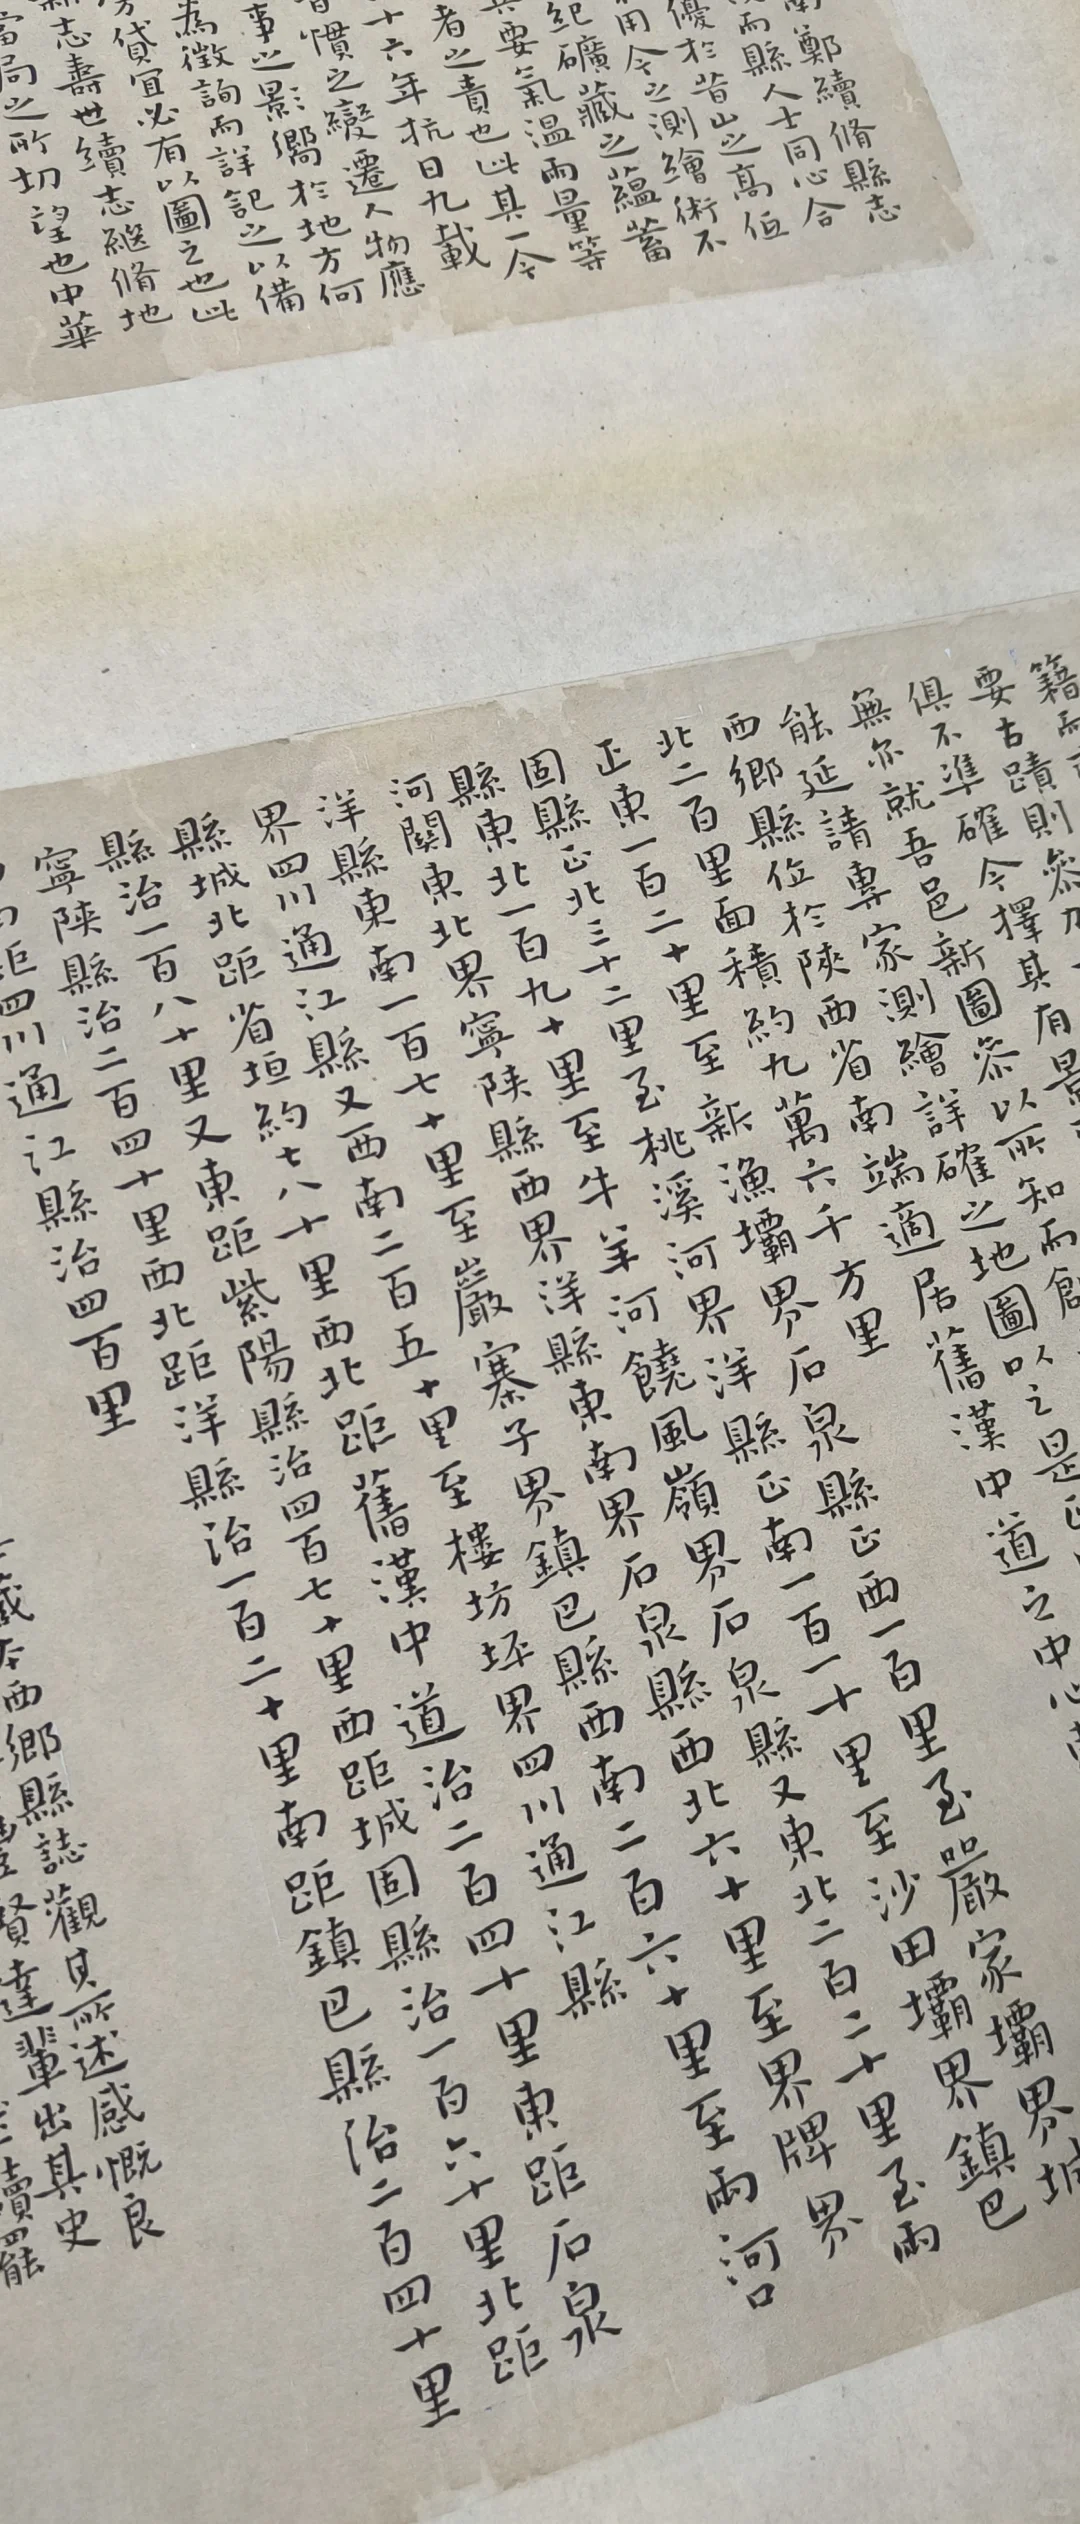 南鄭續脩縣志
而縣人士同心合
優於昔山之高低
用今之測繪術不
紀礦藏之蘊蓄
要氣溫雨量等
者之責也此其一今
十六年抗日九載
習慣之變遷人物應
事之影響於地方何
為徵詢而詳記之以備
貸宜必有以圖之也此
新志壽世續志繼脩地
當局之所切望也中華
籍而
要古蹟則參
俱不準確今擇其有景
無亦就吾邑新圖參以所知而創
能延請專家測繪詳確之地圖以之是正
西鄉縣位於陝西省南端適居舊漢中道之中心南
北二百里面積約九萬六千方里
正東一百二十里至新漁壩界石泉縣正西一百里至嚴家壩界城
固縣正北三十二里至桃溪河界洋縣正南一百一十里至沙田壩界鎮巴
縣東北一百九十里至牛羊河饒風嶺界石泉縣又東北二百二十里至兩
河關東北界寧陝縣西界洋縣東南界石泉縣西北六十里至界牌界
洋縣東南一百七十里至巖寨子界鎮巴縣西南二百六十里至兩河口
界四川通江縣又西南二百五十里至樓坊坪界四川通江縣
縣城北距省垣約七八十里西北距舊漢中道治二百四十里東距石泉
縣治一百八十里又東距紫陽縣治四百七十里西距城固縣治一百六十里北距
寧陝縣治二百四十里西北距洋縣治一百二十里南距鎮巴縣治二百四十里
距四川通江縣治四百里
藏本西鄉縣誌觀其所述感慨良
賢達輩出其史
讀罷